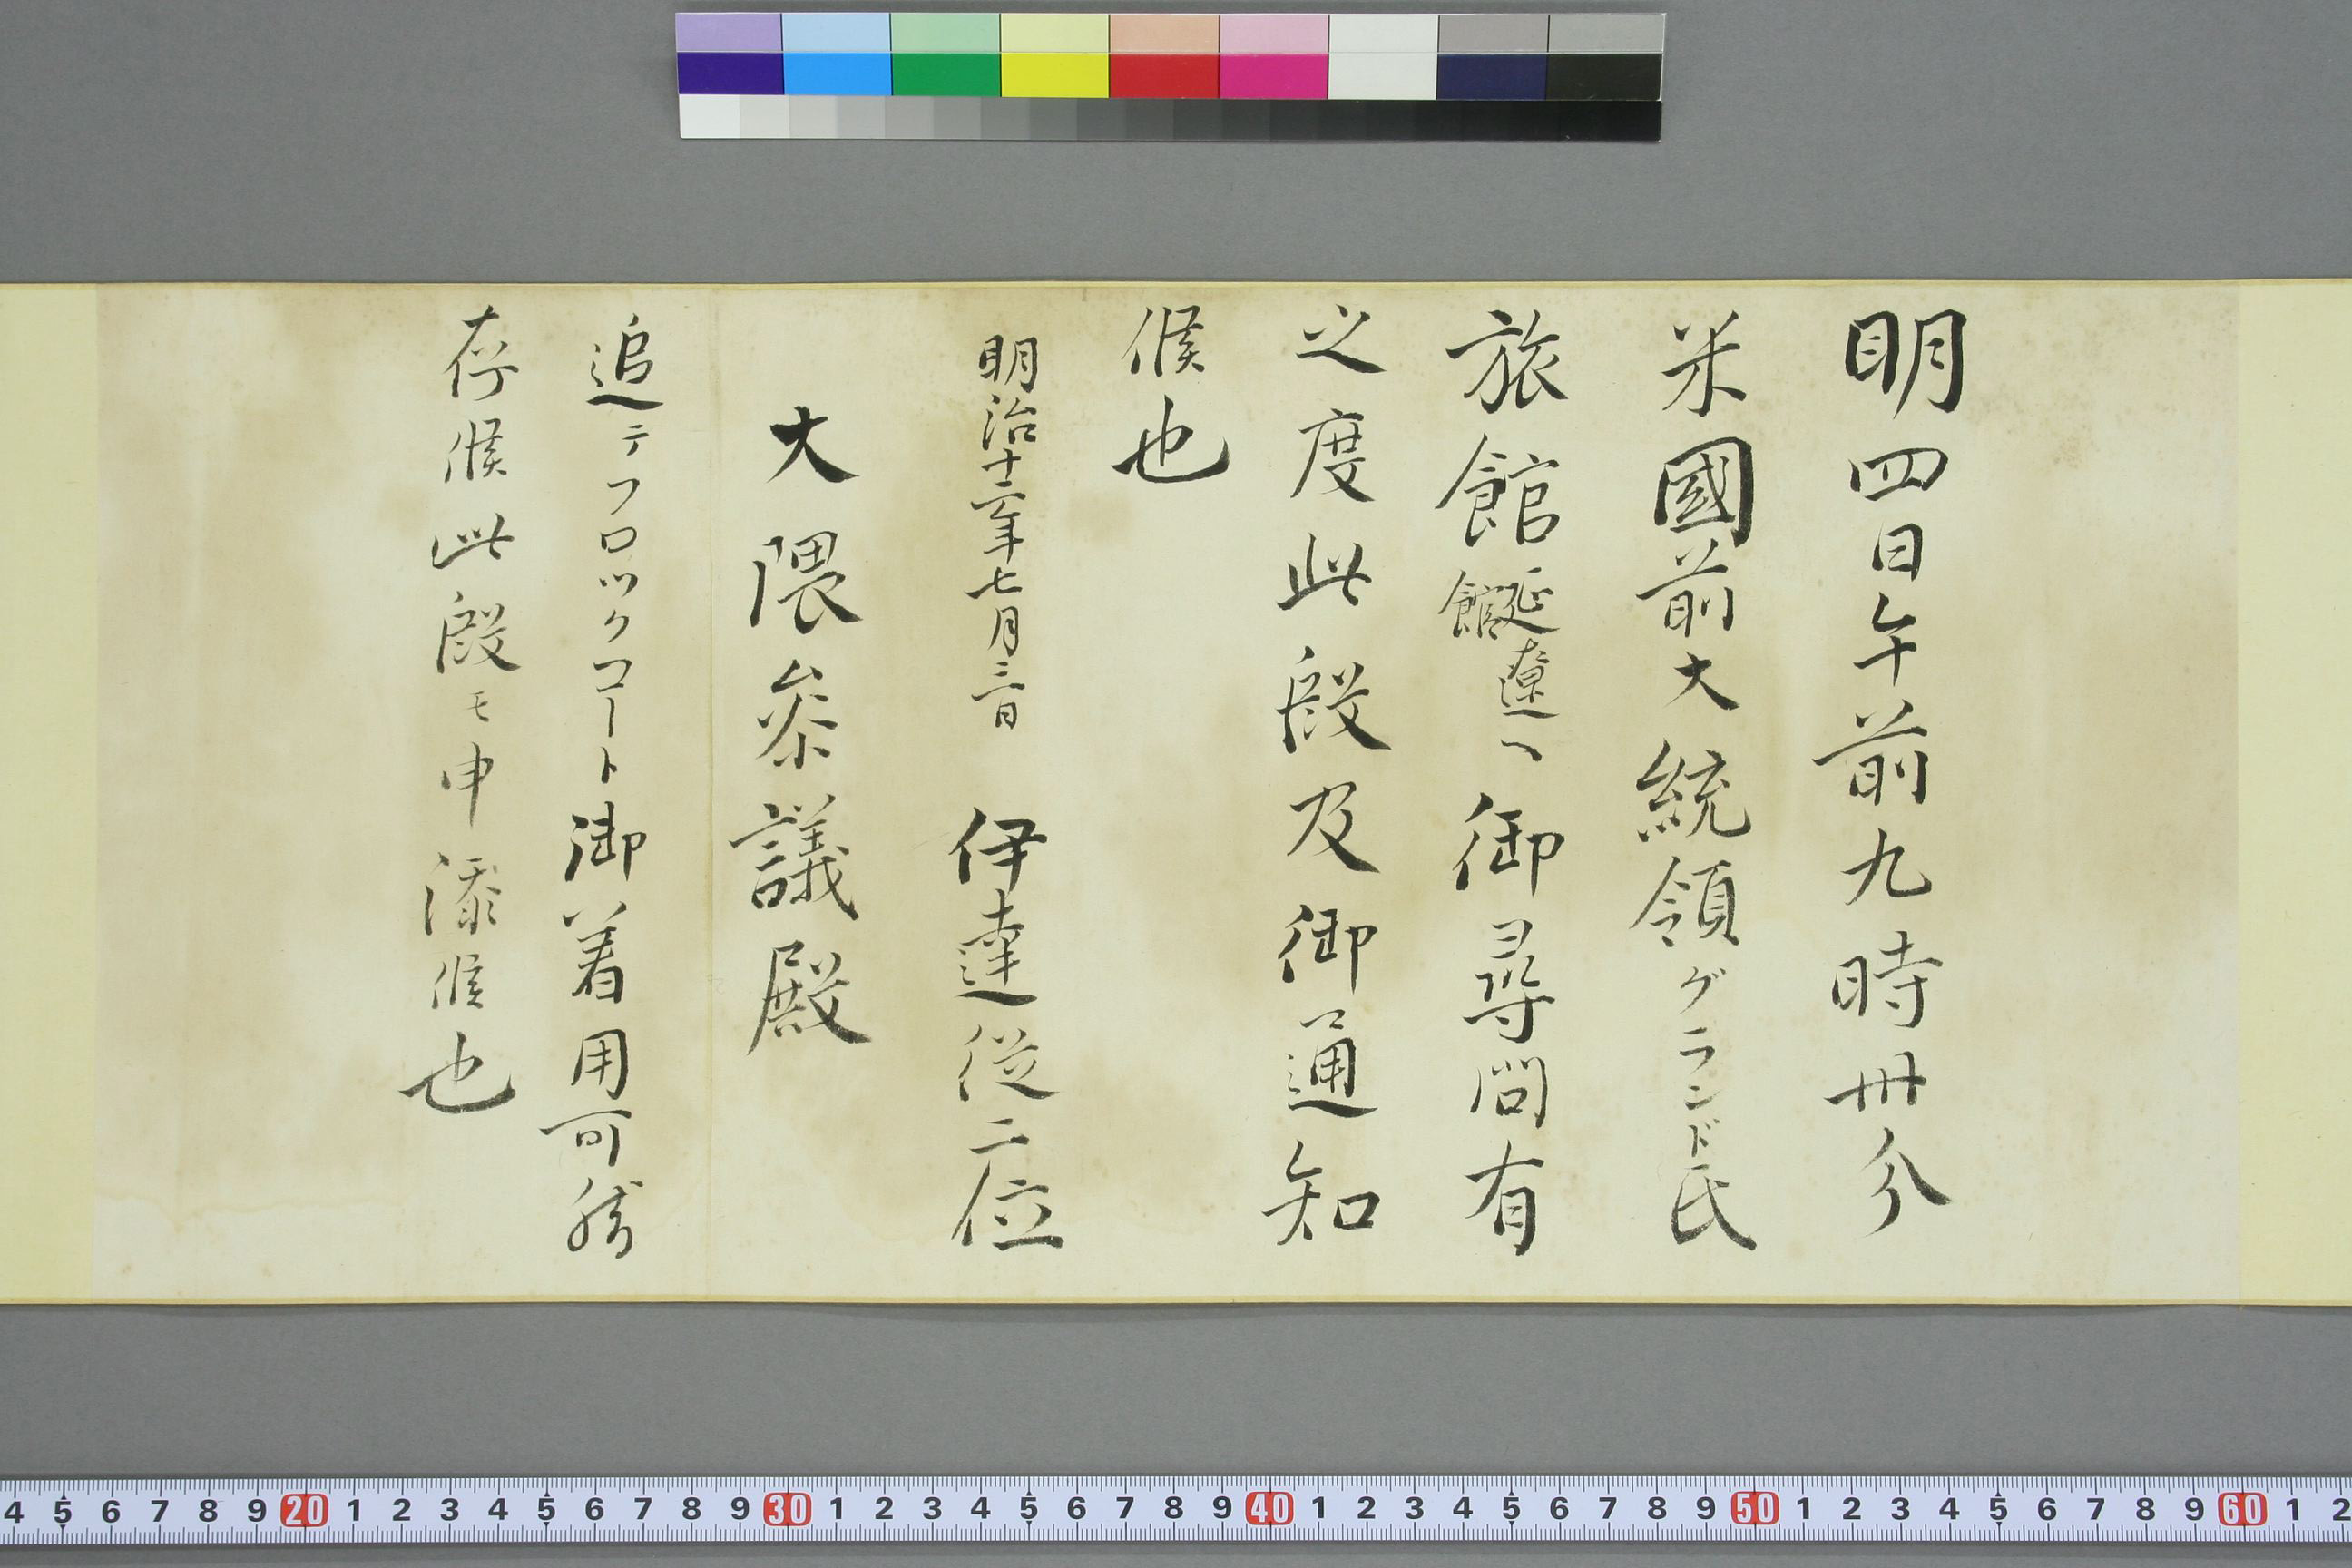 明四日午前九時卅分
米國前大統領グランド氏
旅館延遼館ヘ御尋問有
之度此段及御通知
候也
明治十二年七月三日 伊達従二位
大隈参議殿
追テフロックコート御着用可然
存候此段モ申添候也
4 5 6 7 8 9 20 1 2 3 4 5 6 7 8 9 30 1 2 3 4 5 6 7 8 9 40 1 2 3 4 5 6 7 8 9 50 1 2 3 4 5 6 7 8 9 60 1 2